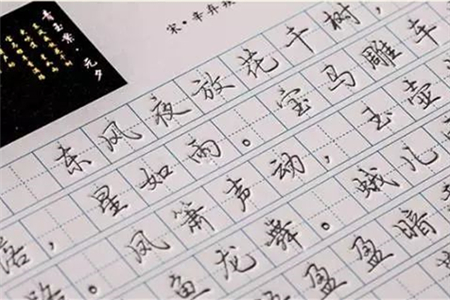 青玉案·元夕
宋·辛弃疾
东风夜放花千树，
落，星如雨。宝马雕车
路。凤箫声动，玉壶
鱼龙舞。蛾儿
盈盈暗